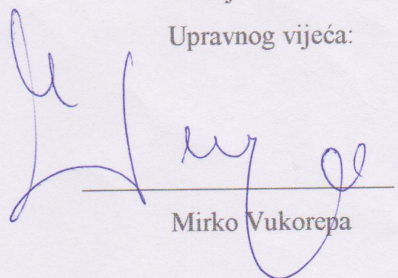 Upravnog vijeća:
Mirko Vukorepa